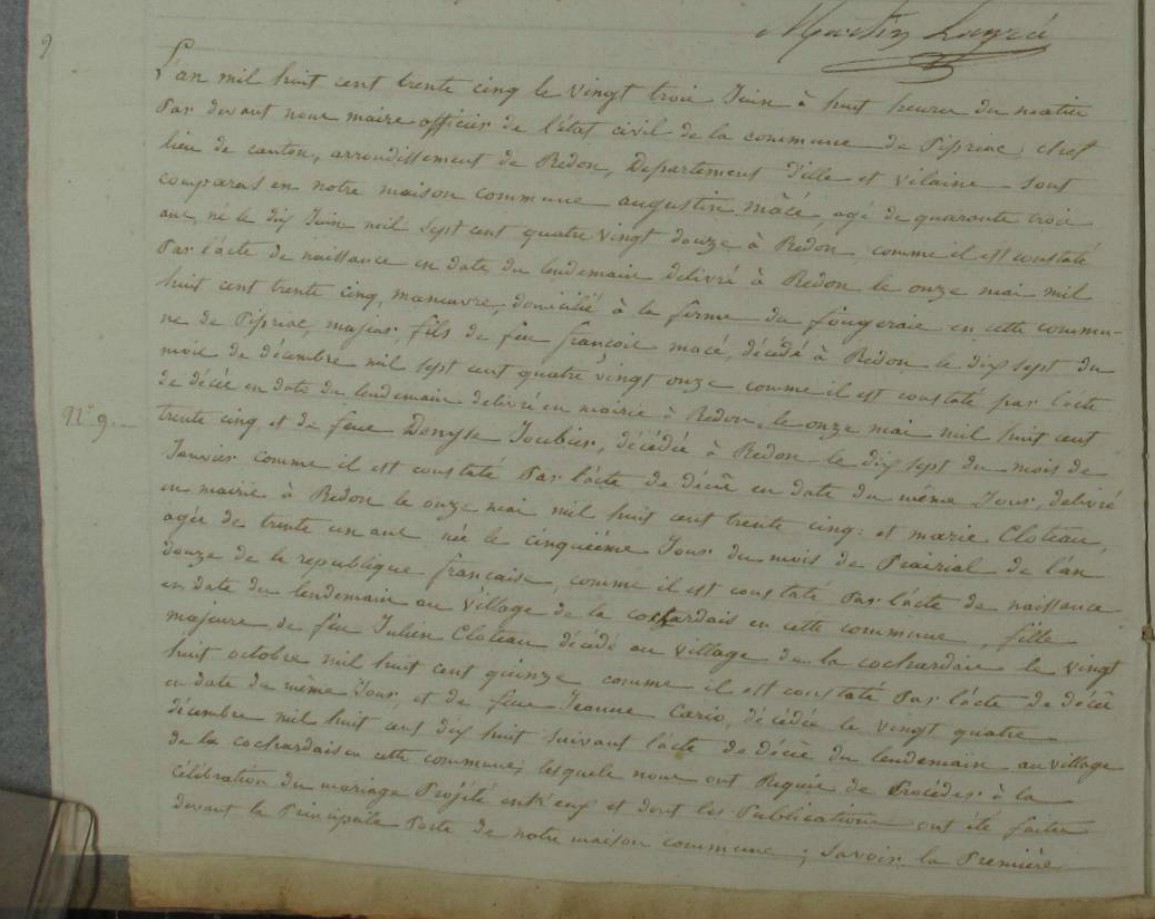 9
Martin
L'an mil huit cent trente cinq le vingt trois Juin à huit heures du matin
Par devant nous maire officier de l'état civil de la commune de Pipriac, chef
lieu de canton, arrondissement de Redon, Departement d'ille et vilaine sont
comparus en notre maison commune augustin mâcé, agé de quarante trois
ans, né le dix Juin mil sept cent quatre vingt douze à Redon, comme il est constaté
Par l'acte de naissance en date du lendemain delivré à Redon le onze mai mil
huit cent trente cinq, manœuvre, domicilié à la ferme du fougeraie en cette commu-
ne de Pipriac, majeur, fils de feu françois macé, décédé à Redon le dix sept du
mois de décembre mil sept cent quatre vingt onze comme il est constaté par l'acte
de décès en date du lendemain delivré en mairie à Redon, le onze mai mil huit cent
N° 9
trente cinq et de feue Denyse Joubier, décédée à Redon le dix sept du mois de
Janvier comme il est constaté Par l'acte de décès en date du même Jour, delivré
en mairie à Redon le onze mai mil huit cent trente cinq: et marie Cloteau,
agée de trente un ans née le cinquième Jour du mois de Prairial de l'an
douze de la republique francaise, comme il est constaté Par l'acte de naissance
en date du lendemain au village de la cochardais en cette commune, fille
majeure de feu Julien Cloteau décédé au village de la cochardais le vingt
huit octobre mil huit cent quinze comme il est constaté Par l'acte de décès
en date du même Jour, et de feue Jeanne Cario, décédée le vingt quatre
décembre mil huit cent dix huit suivant l'acte de décès du lendemain au village
de la cochardais en cette commune; lesquels nous ont Requis de Procéder à la
célébration du mariage Projété entr'eux et dont les Publications ont été faites
devant la Principale Porte de notre maison commune; savoir la Première